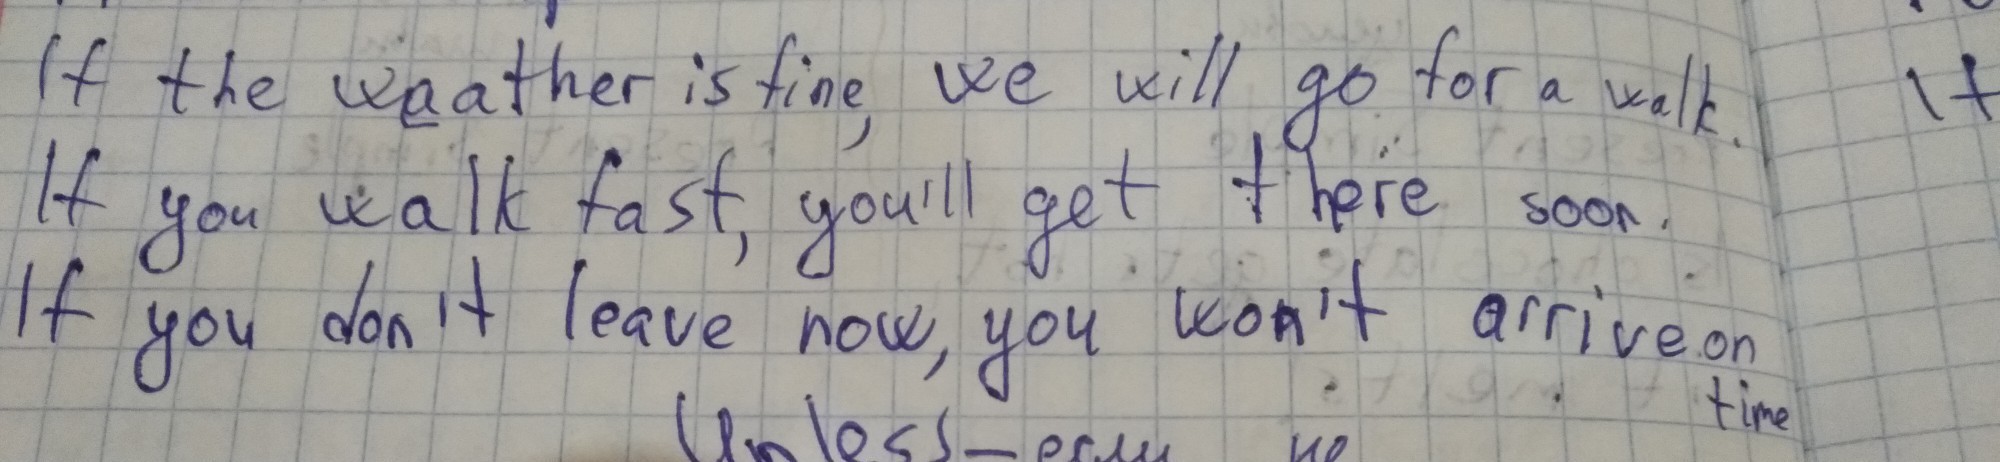 If the waather is fine, we will go for a walk. If
If you walk fast, you'll get there soon.
If you don't leave now, you won't arrive on
time
Unless – если не